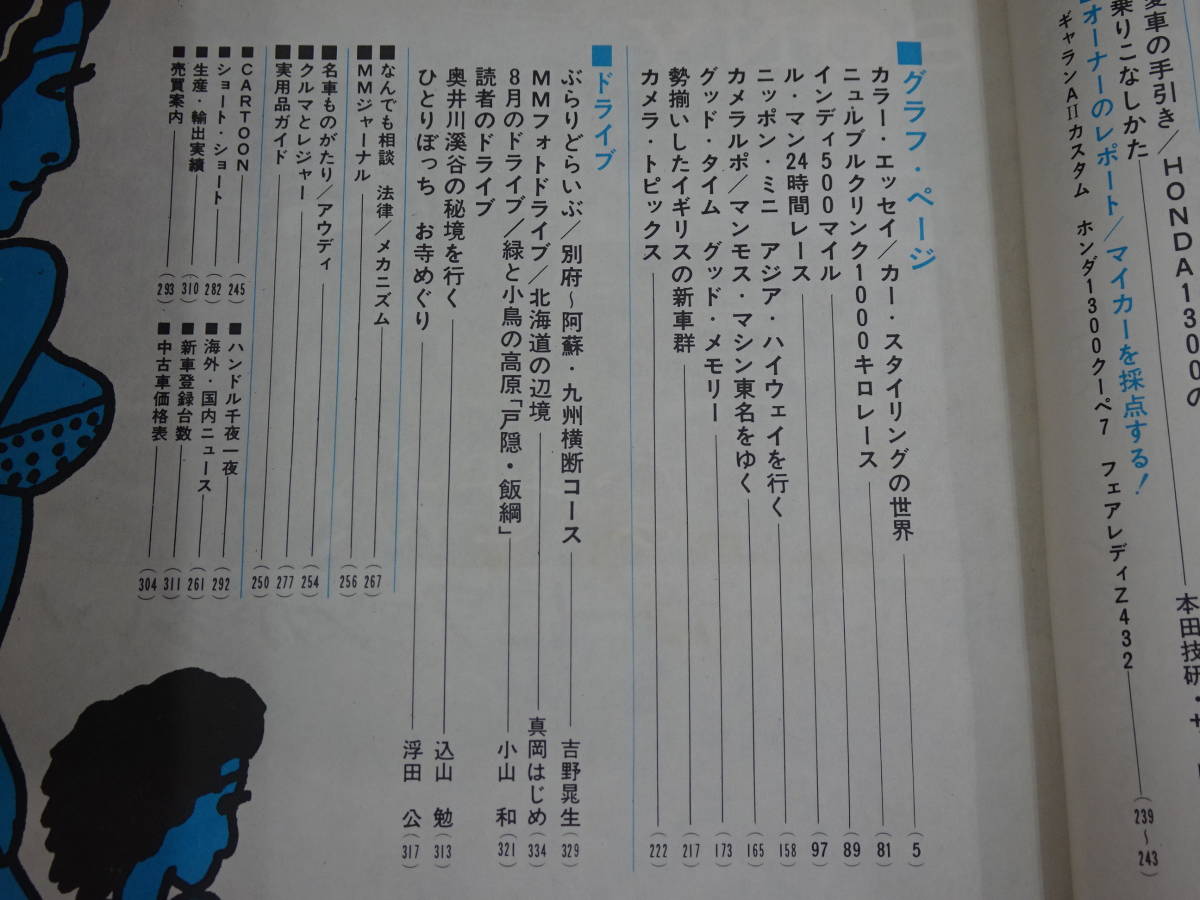 愛車の手引き/HONDA1300の
乗りこなしかた 本田技研・サ
■オーナーのレポート/マイカーを採点する!
ギャランAⅡカスタム ホンダ1300クーペ7 フェアレディZ432 (239〜243)
■グラフ・ページ
カラー・エッセイ/カー・スタイリングの世界 (5)
ニュルブルクリンク1000キロレース (81)
インディ500マイル (89)
ル・マン24時間レース (97)
ニッポン・ミニ アジア・ハイウェイを行く (158)
カメラルポ/マンモス・マシン東名をゆく (165)
グッド・タイム グッド・メモリー (173)
勢揃いしたイギリスの新車群 (217)
カメラ・トピックス (222)
■ドライブ
ぶらりどらいぶ/別府〜阿蘇・九州横断コース 吉野晃生 (329)
MMフォトドライブ/北海道の辺境 真岡はじめ (334)
8月のドライブ/緑と小鳥の高原「戸隠・飯綱」 小山 和 (321)
読者のドライブ
奥井川溪谷の秘境を行く 込山 勉 (313)
ひとりぼっち お寺めぐり 浮田 公 (317)
■なんでも相談 法律/メカニズム (267)
■MMジャーナル (256)
■名車ものがたり/アウディ (254)
■クルマとレジャー (277)
■実用品ガイド (250)
■CARTOON (245)
■ショート・ショート (282)
■生産・輸出実績 (310)
■売買案内 (293)
■ハンドル千夜一夜 (292)
■海外・国内ニュース (261)
■新車登録台数 (311)
■中古車価格表 (304)